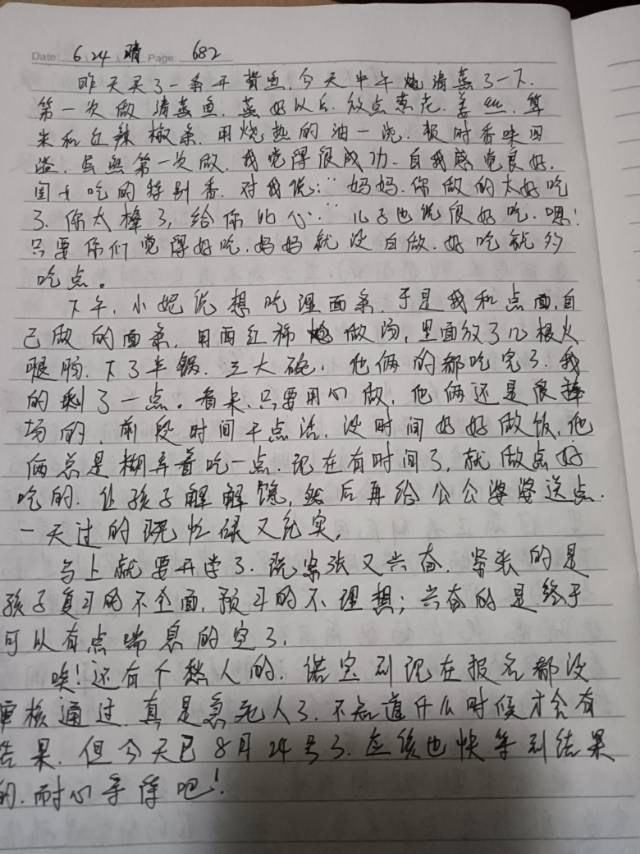 Date 6.24 晴 Page 682
昨天买了一条开背鱼.今天中午 清蒸了一下.
第一次做清蒸鱼.蒸好以后.放点葱花.姜丝.
米和红辣椒条.用烧热的油一浇.那时香味四
溢.虽然第一次做.我觉得很成功.自我感觉良好.
吃的特别香.对我说:"妈妈.你做的太好吃
了.你太棒了,给你比心."儿子也说很好吃.嗯!
只要你们觉得好吃.妈妈就没白做.好吃就多
吃点。
下午.小妮说想吃湿面条.于是我和点面.自
己做的面条.用西红柿 做汤,里面放了几根火
腿肠.下了半锅.三大碗.他俩的都吃完了.我
的剩了一点。看来.只要用心做,他俩还是很捧
场的.前段时间干点活.没时间好好做饭.他
俩总是糊弄着吃一点.现在有时间了.就做点好
吃的.让孩子解解馋,然后再给公公婆婆送点.
一天过的既忙碌又充实.
马上就要开学了.既紧张又兴奋.紧张的是
孩子复习的不全面.预习的不理想;兴奋的是终于
可以有点喘息的空了.
唉!还有个愁人的.诺宝到现在报名都没
审核通过.真是急死人了.不知道什么时候才会有
结果.但今天已8月24号了.应该也快等到结果
的.耐心等待吧!